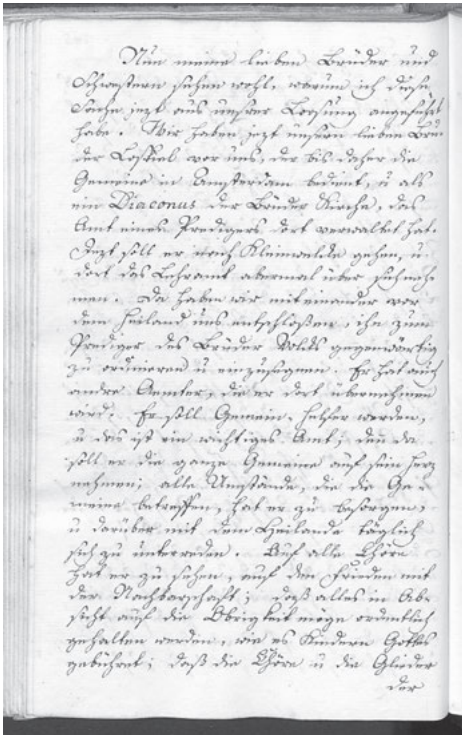 Nun meine lieben Brüder und
Schwestern sehen wohl, warum ich diese
Sache jezt aus unsrer Loosung angeführt
habe. Wir haben jezt unsern lieben Bru-
der Loskiel vor uns, der bis daher die
Gemeine in Amsterdam bedient, u als
ein Diaconus der Brüder Kirche, das
Amt eines Predigers dort verwaltet hat.
Jezt soll er nach Kleinwelke gehen, u
dort das Lehramt abermal über sich neh-
men. Da haben wir mit einander vor
dem Heiland uns entschloßen, ihn zum
Prediger des Brüder Volks gegenwärtig
zu ordiniren u einzusegnen. Er hat auch
andre Aemter, die er dort übernehmen
wird. Er soll Gemein-Helfer werden,
u das ist ein wichtiges Amt; den da
soll er die ganze Gemeine auf sein Herz
nehmen; alle Umstände, die die Ge-
meine betreffen, hat er zu besorgen,
u darüber mit dem Heilande täglich
sich zu unterreden. Auf alle Chöre
hat er zu sehen, auf den Frieden mit
der Nachbarschaft; daß alles in Ab-
sicht auf die Obrigkeit möge ordentlich
gehalten werden, wie es Kindern Gottes
gebühret; daß die Chöre u die Glieder
der